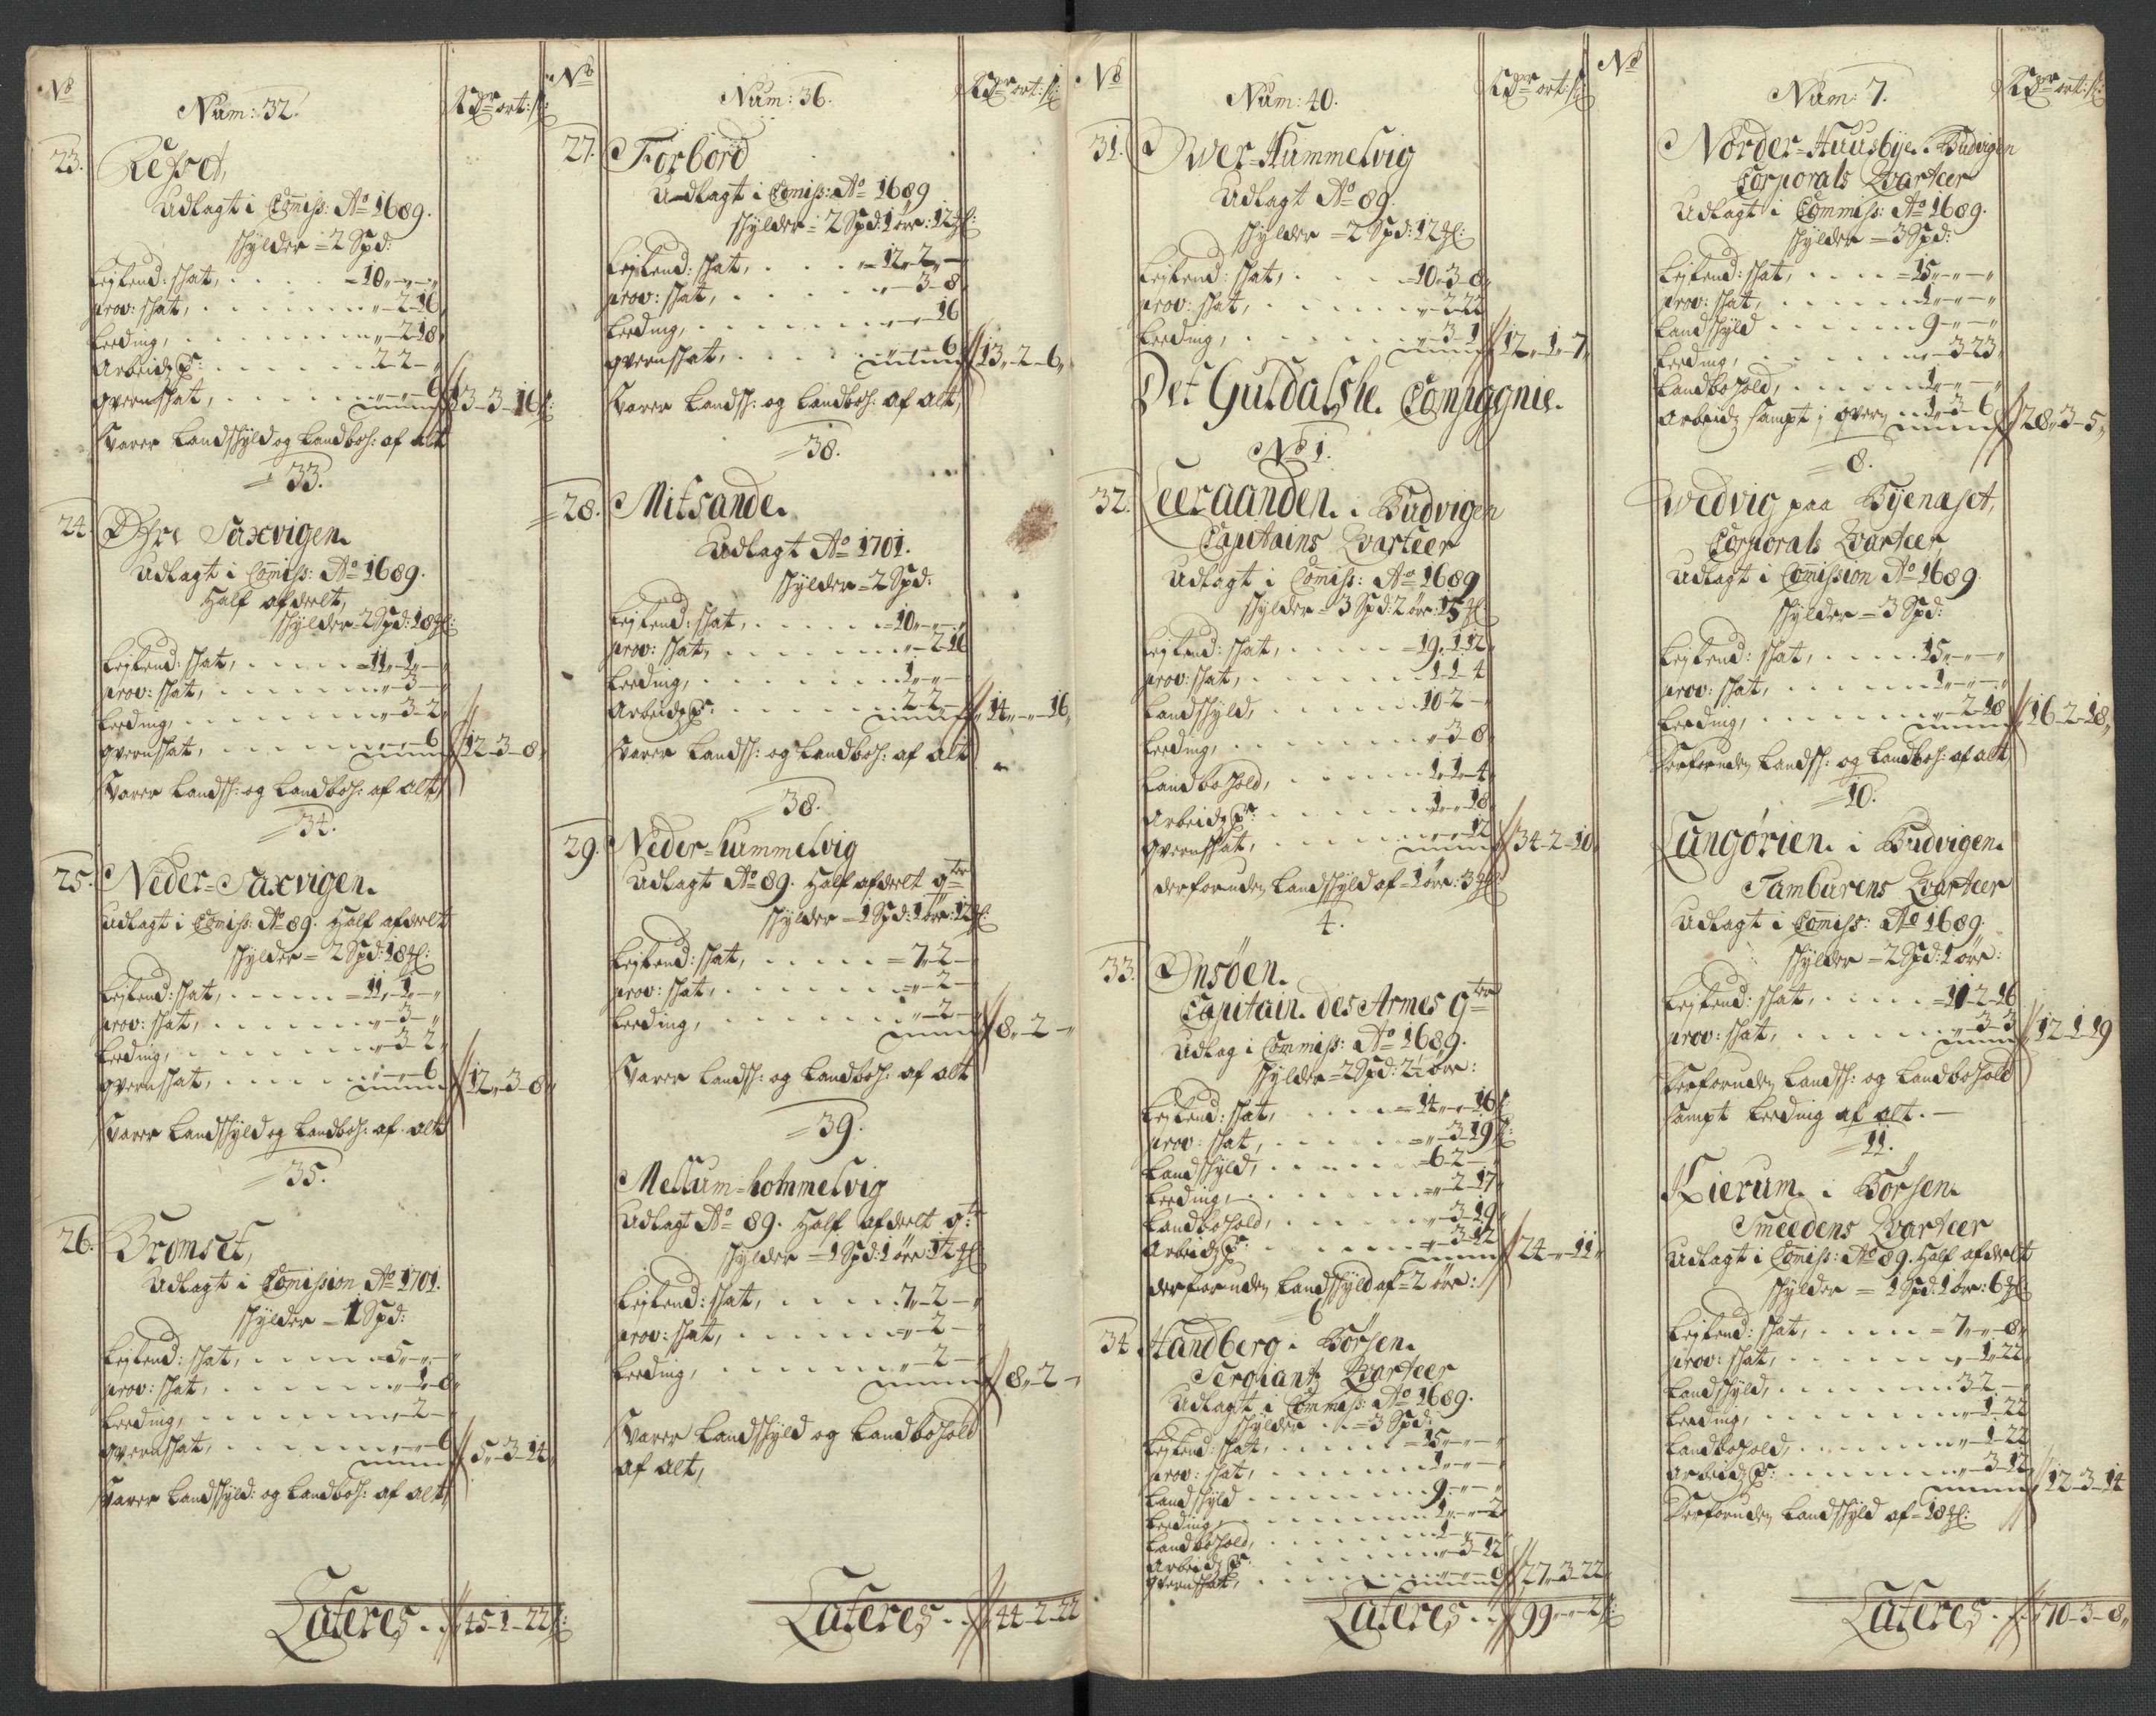 No
Num: 32.
Rdr ort: s:
23.
Refset,
Udlagt i Comiss: Ao 1689.
skylder = 2 Spd:
Lejlend: skat, . . . . = 10 „ - „ - „
prov: skat, . . . . . „ - 2 - 16
Leeding, . . . . . „ - 2 - 18
Arbeidz P: . . . . 2 - 2 - „
Qvernskat, . . . . „ - „ - 6 // 13 - 3 - 16 s:
svarer Landskyld og Landboh: af alt
= 33.
24.
Øfre Saxvigen.
Udlagt i Comiss: Ao 1689.
Half afdeelt,
skylder = 2 Spd: 18 ℳ:
Lejlend: skat, . . . . = 11 „ - 1 „ - „
prov: skat, . . . . . „ - 3 - „
Leeding, . . . . . „ - 3 - 2 „
Qvernskat, . . . . „ - „ - 6 // 12 - 3 - 8 „
svarer Landsk: og Landboh: af alt,
= 34.
25.
Neder = Saxvigen.
Udlagt i Comiss: Ao 89. Half afdeelt
skylder = 2 Spd: 18 ℳ:
Lejlend: skat, . . . . = 11 „ - 1 „ - „
prov: skat, . . . . . „ - 3 - „
Leeding, . . . . . „ - 3 - 2 „
Qvernskat, . . . . „ - „ - 6 // 12 „ - 3 - 8 „
svarer Landskyld og Landboh: af alt
= 35.
26.
Bromset,
Udlagt i Comission Ao 1701.
skylder = 1 Spd:
Lejlend: skat, . . . . = 5 „ - „ - „
prov: skat, . . . . . „ - 1 - 8 „
Leeding, . . . . . „ - 2 - „
Qvernskat, . . . . „ - „ - 6 // 5 „ - 3 - 14 „
svarer Landskyld: og Landboh: af alt,
Lateres . . // 45 - 1 - 22 s:
No
Num: 36.
Rdr ort: s:
27.
Forbord
Udlagt i Comiss: Ao 1689
skylder = 2 Spd: 1 øre: 12 ℳ:
Lejlend: skat, . . . . „ = 12 „ 2 „ -
prov: skat, . . . . . „ - 3 - 8
Leeding, . . . . . „ - „ - 16
Qvernskat, . . . . „ - „ - 6 // 13 „ - 2 - 6 „
svarer Landsk: og Landboh: af alt,
= 38.
= 28.
Mitsande.
Udlagt Ao 1701.
skylder = 2 Spd:
Lejlend: skat, . . . . = 10 „ - „ - „
prov: skat, . . . . . „ - 2 - 16
Leeding, . . . . . 1 „ - „ -
Arbeidz P: . . . . 2 - 2 „ - // 14 „ - „ - 16 „
svarer Landsk: og Landboh: af alt
= 38.
29.
Neder = hummelvig
Udlagt Ao 89. Half afdeelt qter
skylder = 1 Spd: 1 øre: 12 ℳ:
Lejlend: skat, . . . . = 7 „ 2 -
prov: skat, . . . . . = „ - 2 -
Leeding, . . . . . „ - 2 - „ // 8 „ - 2 - „
svarer Landsk: og Landboh: af alt
= 39.
Mellum = hommelvig
Udlagt Ao 89. Half afdeelt qt:
skylder = 1 Spd: 1 øre: 12 ℳ:
Lejlend: skat, . . . . 7 „ - 2 - „
prov: skat, . . . . . = „ - 2 - „
Leeding, . . . . . „ - 2 - „ // 8 „ - 2 - „
svarer Landskyld og Landbohold
af alt,
Lateres . . // 44 - 2 - 22
No
Num: 40.
Rdr ort: s:
31.
Øwer = Hummelvig
Udlagt Ao 89.
skylder = 2 Spd: 12 ℳ:
Lejlend: skat, . . . . = 10 „ 3 - 8 „
prov: skat, . . . . . „ - 2 - 22
Leeding, . . . . . „ - 3 - 1 // 12 „ - 1 - 7 „
Det Guldalske Compagnie.
No 1.
32.
Leeraanden. i Budvigen
Capitains Qvarteer
Udlagt i Comiss: Ao 1689
skylder = 3 Spd: 2 øre: 15 ℳ:
Lejlend: skat, . . . . = 19 „ 1 - 12 „
prov: skat, . . . . . 1 - 1 - 4
Landskyld, . . . . 10 - 2 - „
Leeding, . . . . . „ - 3 - 8 „
Landbohold, . . . . 1 - 1 - 4 „
Arbeidz P: . . . . 1 - „ - 18 „
Qvernskat, . . . . „ - „ - 12 // 34 - 2 - 10 „
derforuden Landskyld af = 1 øre: 3 ℳ:
4.
33.
Onsøen.
Capitain des Armes qter
Udlag i Commiss: Ao 1689.
skylder = 2 Spd: 2½ øre:
Lejlend: skat, . . . . = 14 „ - „ - 16 s:
prov: skat, . . . . . = „ - 3 - 19 s:
Landskyld, . . . . = 6 - 2 - „
Leeding, . . . . . = „ - 2 - 17 „
Landbohold, . . . . „ - 3 - 19 „
Arbeidz P: . . . . „ - 3 - 12 // 24 - „ - 11 „
derforuden Landskyld af = 2 øre:
= 6
34.
Handberg i Børsen.
Sergiantz Qvarteer
Udlagt i Commiss: Ao 1689.
skylder . . = 3 Spd:
Lejlend: skat, . . . . = 15 „ - „ - „
prov: skat, . . . . . 1 „ - „ - „
Landskyld . . . . 9 „ - „ - „
Leeding, . . . . . 1 „ - „ - 2
Landbohold, . . . . 1 - „ - „
Arbeidz P: . . . . „ - 3 - 12
Qvernskat, . . . . „ - „ - 6 // 27 „ 3 - 22 „
Lateres . . // 99 „ - „ - 2 s:
No
Num: 7.
Rdr ort: s:
Nørder = Huusbye. i Budvigen
Corporals Qvarteer
Udlagt i Commiss: Ao 1689.
skylder = 3 Spd:
Lejlend: skat, . . . . = 15 „ - „ - „
prov: skat, . . . . . 1 „ - „ - „
Landskyld . . . . 9 - „ - „
Leeding, . . . . . „ - 3 - 23
Landbohold, . . . . 1 - „ - „
Arbeidz sampt i qvern . . 1 „ 3 - 6 // 28 „ 3 - 5 „
= 8.
Wedvig paa Byenaset,
Corporals Qvarteer
Udlagt i Comission Ao 1689
skylder = 3 Spd:
Lejlend: skat, . . . . 15 „ - „ - „
prov: skat, . . . . . 1 „ - „ - „
Leeding, . . . . . „ - 2 - 18 // 16 - 2 - 18 „
Derforuden Landsk: og Landboh: af alt,
= 10.
Langørien. i Budvigen.
Tamburens Qvarteer
Udlagt i Comiss: Ao 1689.
skylder = 2 Spd: 1 øre:
Lejlend: skat, . . . . = 11 - 2 - 16
prov: skat, . . . . . „ - 3 - 3 // 12 - 1 - 19
Derforuden Landsk: og Landbohold
sampt Leeding af alt. -
= 11.
Kierum. i Børsen.
Smeedens Qvarteer
Udlagt i Comiss: Ao 89. Half afdeelt
skylder = 1 Spd: 1 øre: 6 ℳ:
Lejlend: skat, . . . . = 7 „ - „ - 8 „
prov: skat, . . . . . „ - 1 - 22 „
Landskyld, . . . . 3 - 2 - „
Leeding, . . . . . „ - 1 - 22
Landbohold, . . . . „ - 1 - 22
Arbeidz P: . . . . „ - 3 - 12 // 12 - 3 - 14
Derforuden Landskyld af = 18 ℳ:
Lateres . // 70 - 3 - 8 „